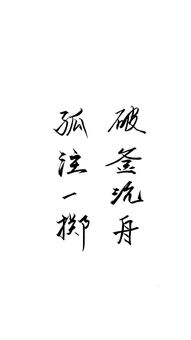 破釜沉舟
孤注一掷